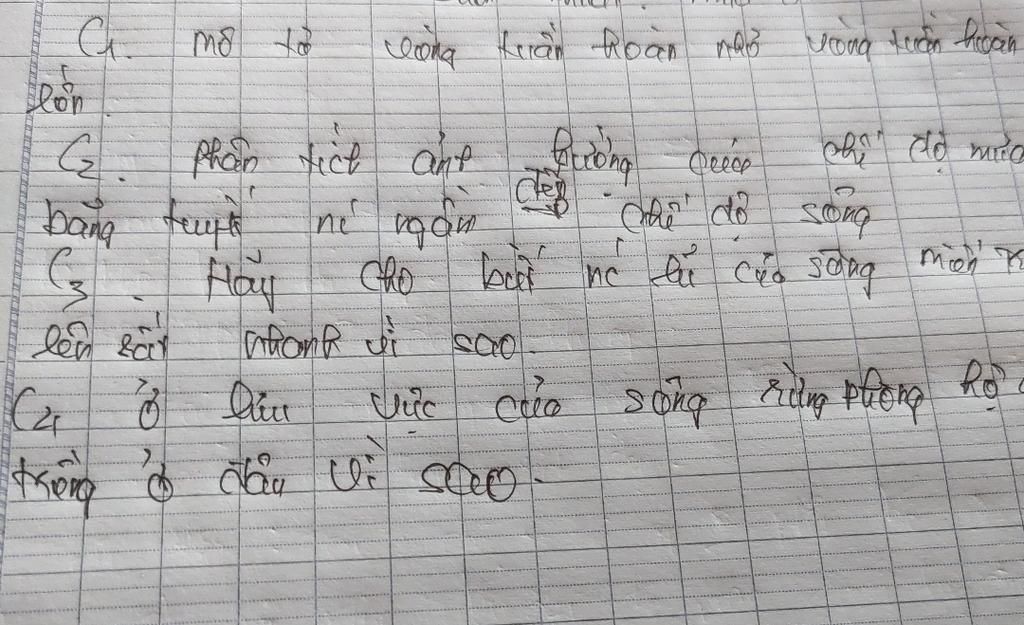 C1. mô tả vòng tuần hoàn nhỏ vòng tuần hoàn
lớn.
C2. phân tích ảnh hưởng chế độ mưa
băng tuyết nc ngầm đến chế độ sông
C3. Hãy cho biết nc lũ của sông miền
lên rất nhanh vì sao.
C4 ở lưu vực của sông rừng phòng hộ
trồng ở đâu vì sao.